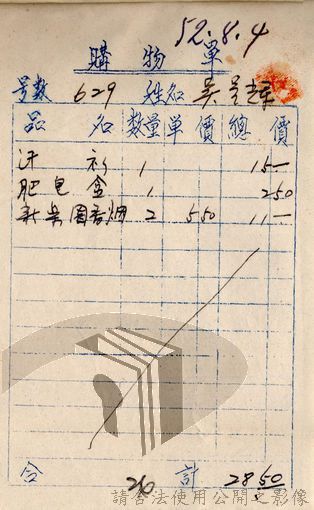 52.8.4
購物單
号數 629 姓名 吳
品名 數量 單價 總價
汗衫 1 15—
肥皂盒 1 250
新樂園香烟 2 550 11—
合計 2850
請合法使用公開之影像